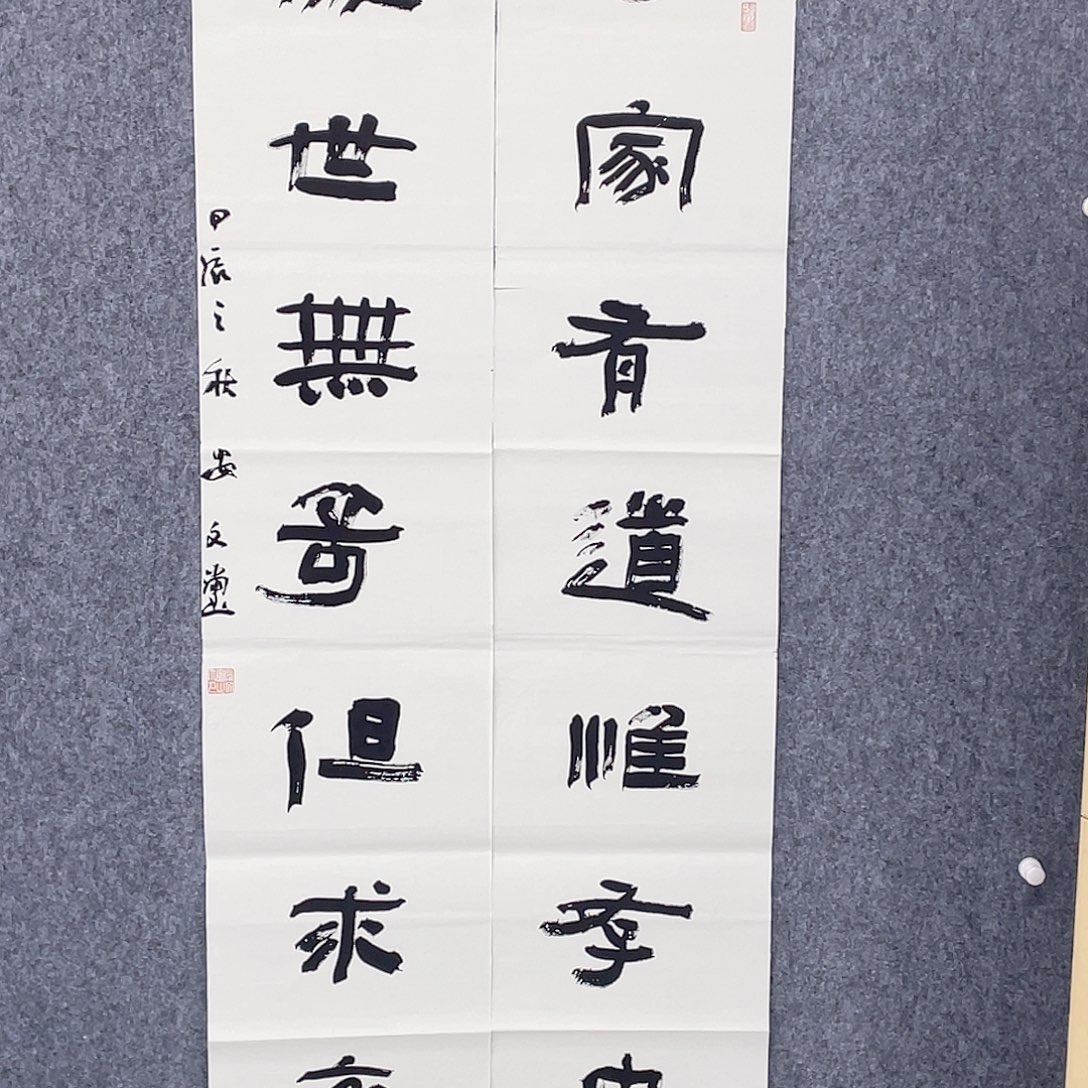 家有道惟孝
世無奇但求
甲辰之秋 安文